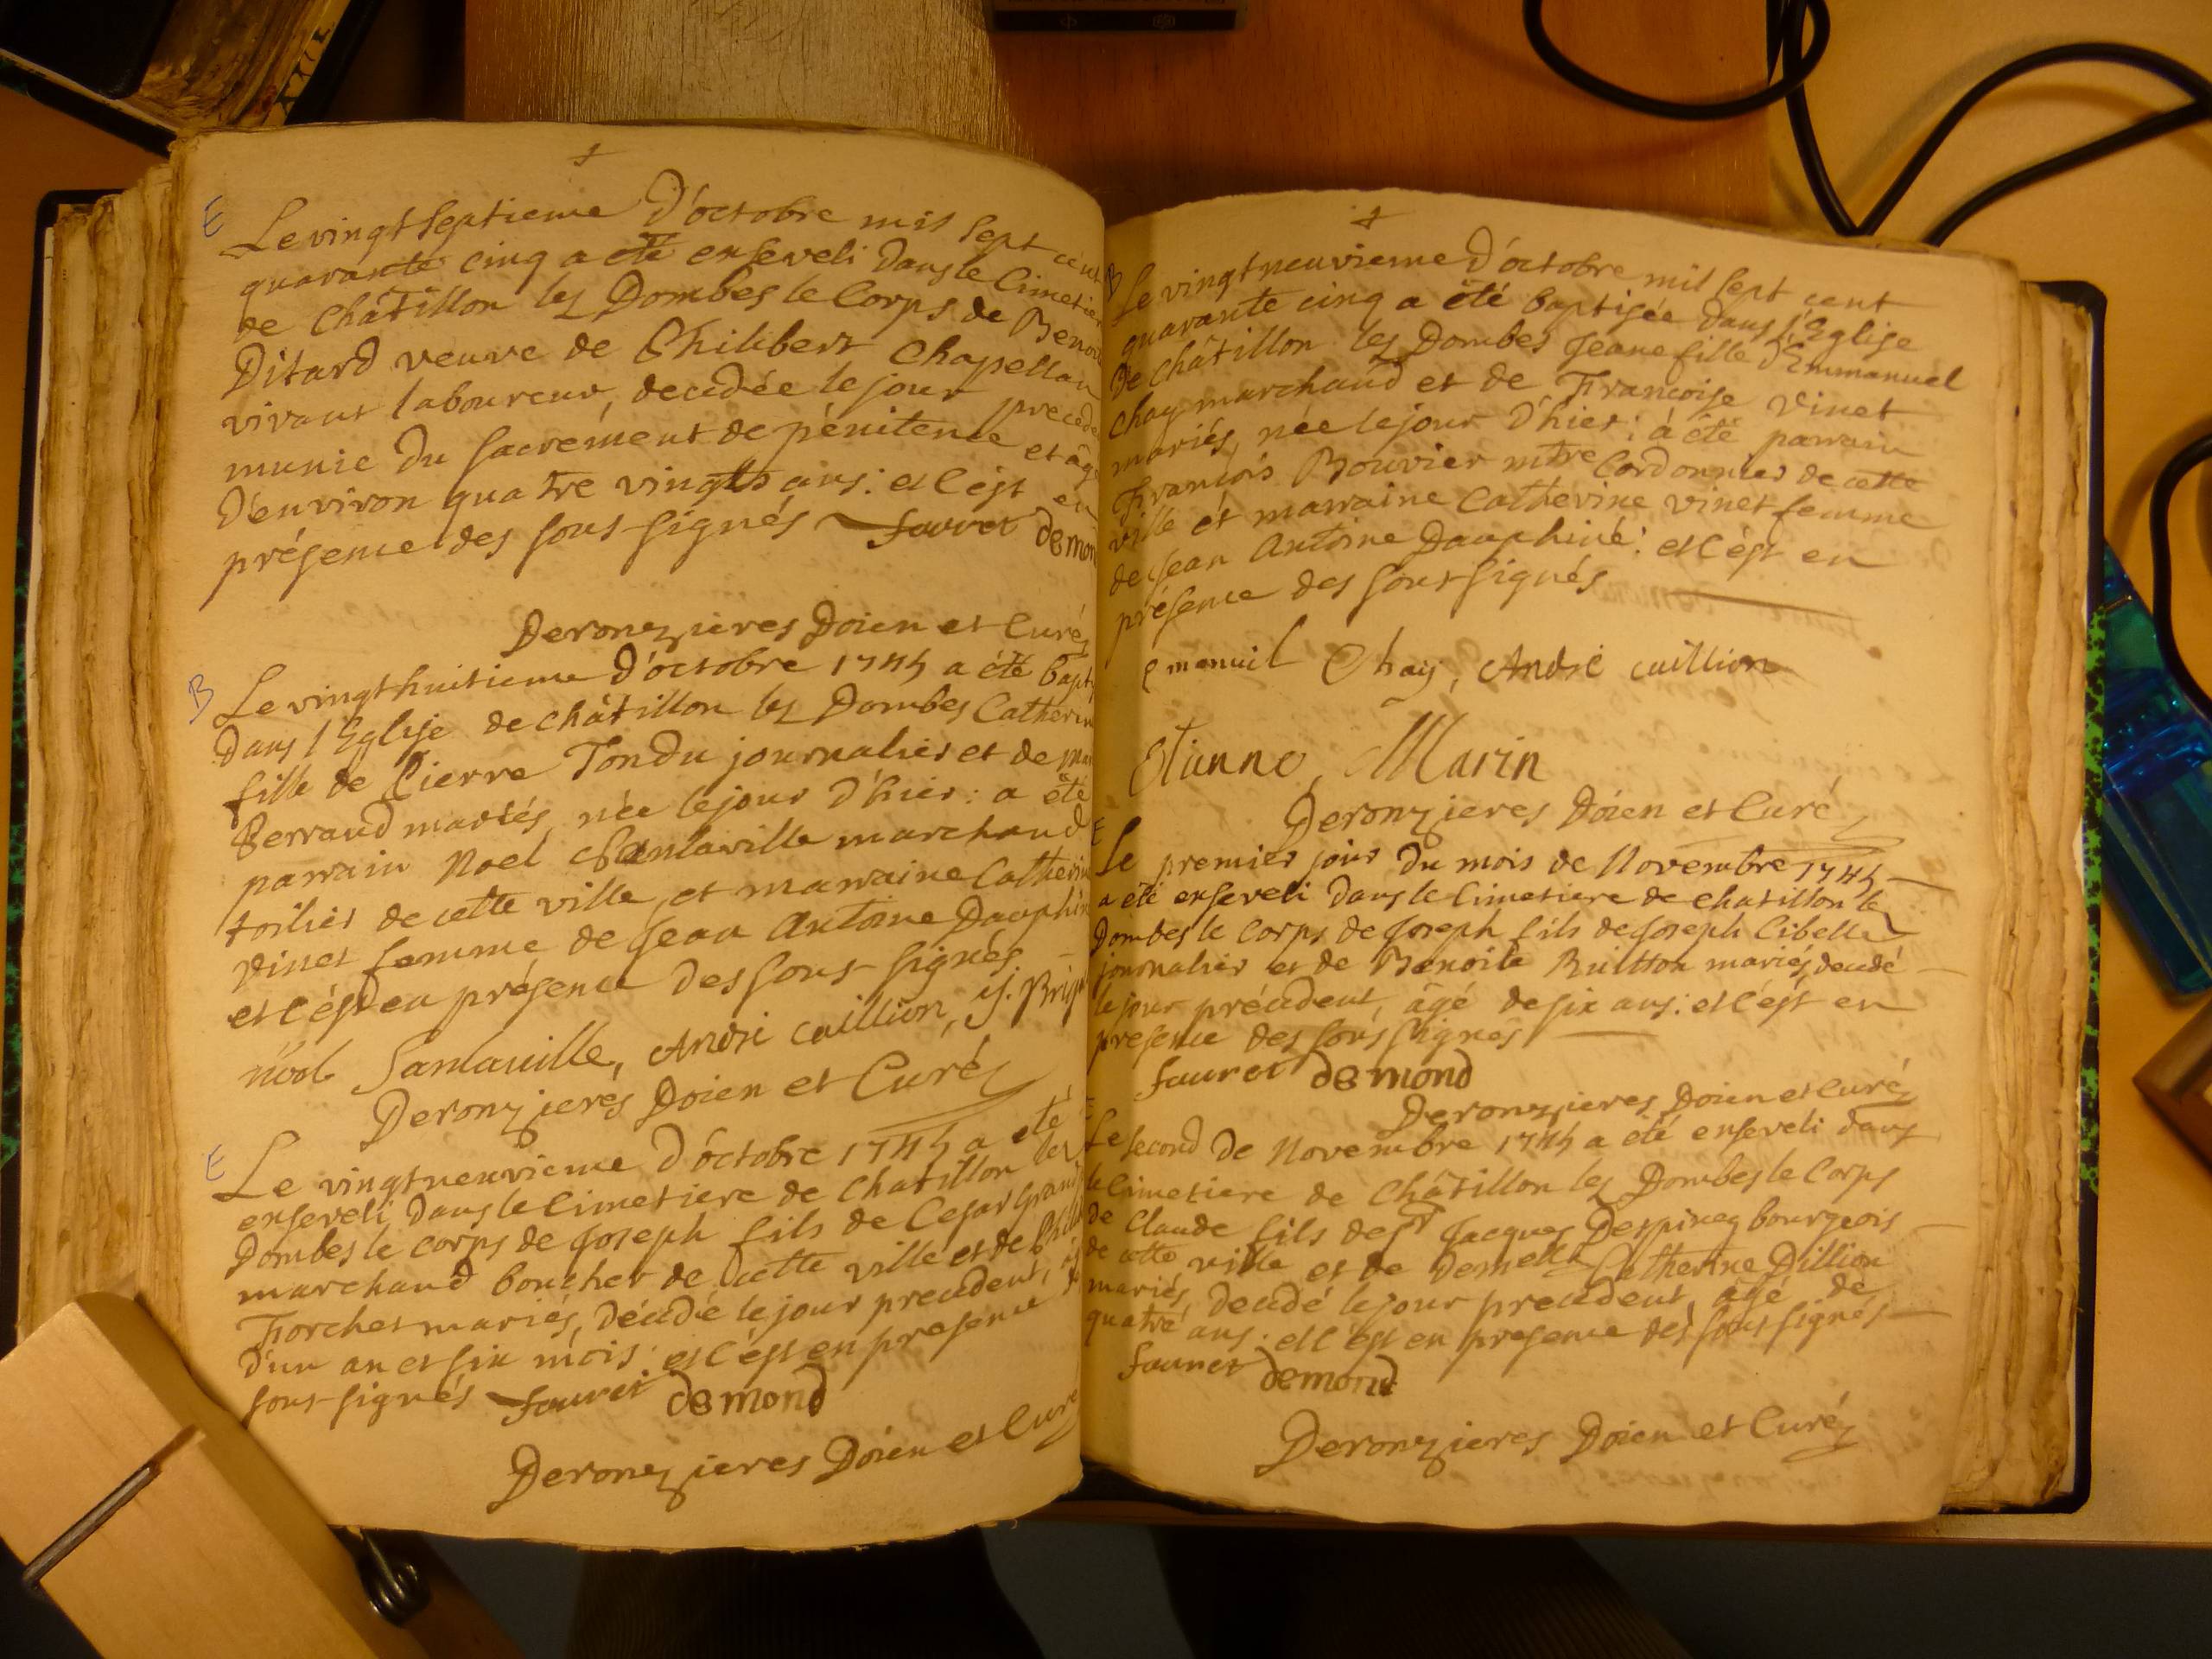 E
Le vingt septieme d'octobre mil sept cent
quarante cinq a été enseveli dans le Cimetier
de Châtillon les Dombes le Corps de Benoit
Ditard veuve de Philibert Chapellan
vivant laboureur, decedée le jour preced
munie du sacrement de pénitence et âgé
d'environ quatre vingts ans: et c'est en
présence des sous-signés fauret demon
Deronzieres Doien et Curé
B
Le vingt huitieme d'octobre 1745 a été bapt
dans l'Eglise de châtillon les Dombes Catherin
fille de Pierre Tondu journalier et de
Berraud mariés, née le jour d'hier: a été
parrain Noel Santaville marchand
toilier de cette ville, et marraine Catherin
vinet femme de Jean Antoine Dauphin
et c'est en présence des sous-signés
noel Santauille, André cuillion, J.
Deronzieres Doien et Curé
E
Le vingt neuvieme d'octobre 1745 a été
enseveli dans le Cimetiere de chatillon les
Dombes le corps de Joseph fils de Cesar
marchand boucher de cette ville et de
Forchet mariés, décédé le jour precedent,
d'un an et six mois: et c'est en presence
sous-signés fauret demond
Deronzieres Doien et Curé
B
Le vingt neuvieme d'octobre mil sept cent
quarante cinq a été baptisée dans l'Eglise
de châtillon les Dombes Jeane fille d'Emmanuel
Chay marchand et de Francoise Vinet
mariés, née le jour d'hier: a été parrain
Francois Bouvier mtre Cordonnier de cette
ville et marraine Catherine vinet femme
de Jean Antoine Dauphiné: et c'est en
présence des sous-signés
emanuil Chay, André cuillion
Etianne, Marin
Deronzieres Doien et Curé
E
Le premier jour du mois de Novembre 1745
a été enseveli dans le Cimetiere de chatillon les
Dombes le Corps de Joseph fils de Joseph Cibelle
journalier et de Benoite mariés, decedé
le jour précedent, âgé de six ans: et c'est en
presence des sous signés
fauret demond
Deronzieres Doien et Curé
E
Le second de Novembre 1745 a été enseveli dans
le Cimetiere de Châtillon les Dombes le Corps
de Claude fils de Sr Jacques Despiney bourgeois
de cette ville et de Demelle Catherine Dillion
mariés, decedé le jour precedent, âgé de
quatre ans: et c'est en presence des sous signés
fauret demond
Deronzieres Doien et Curé